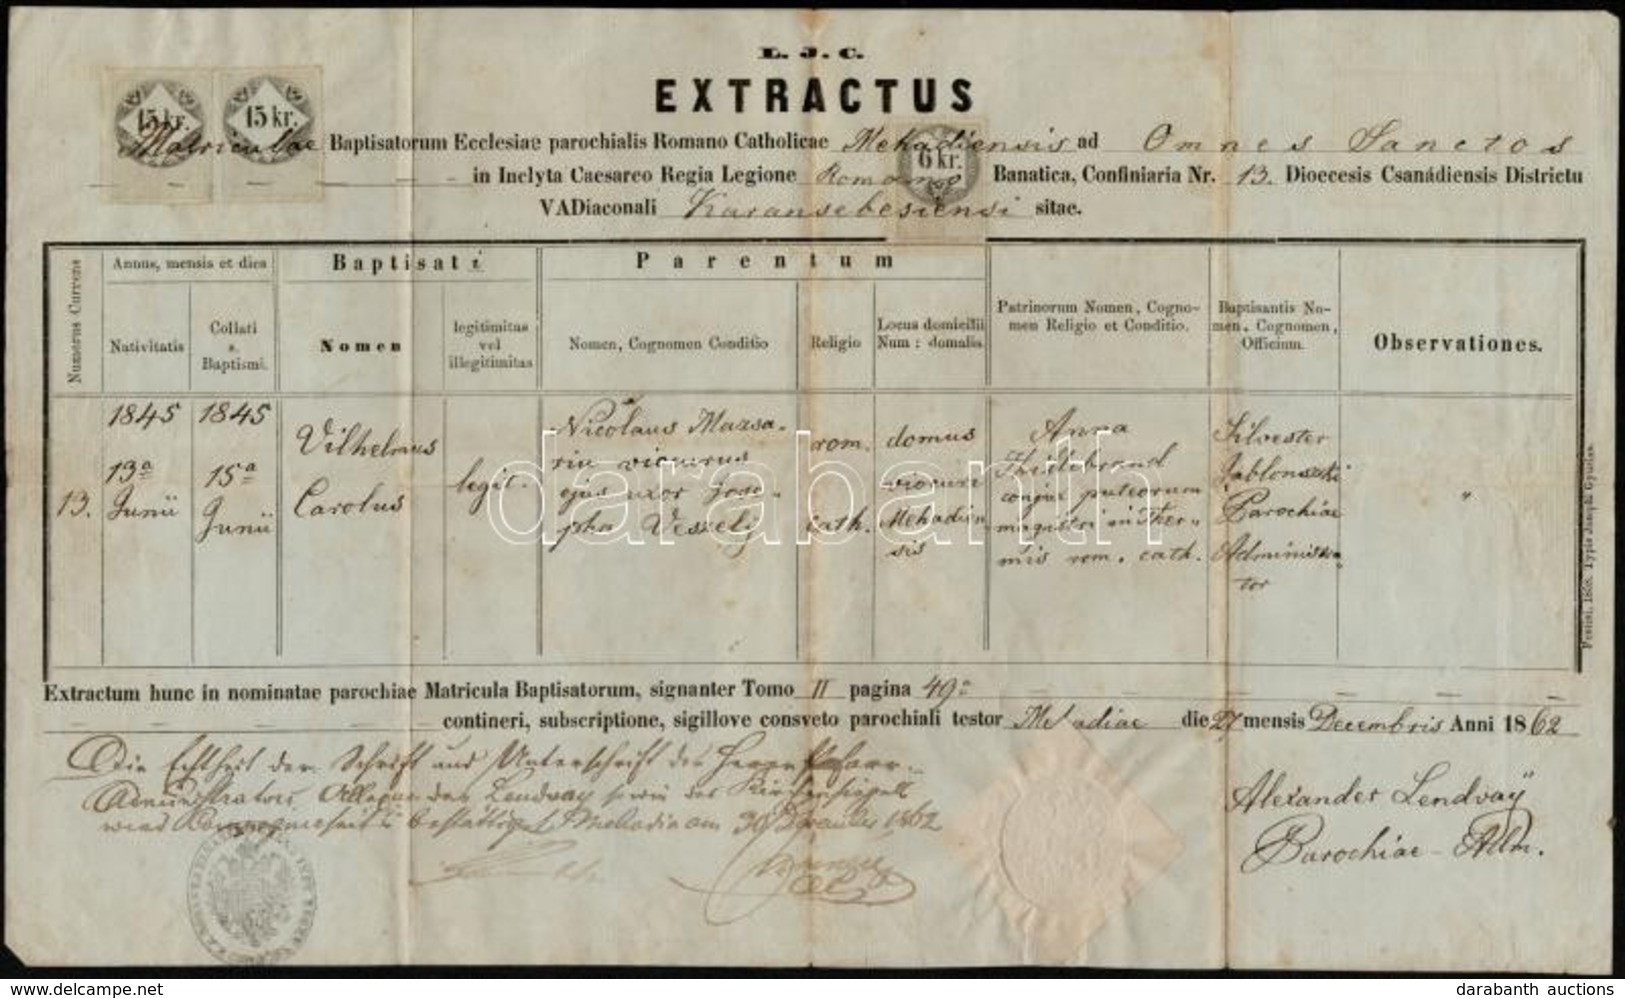 L. J. C.
EXTRACTUS
15 kr. 15 kr.
Matriculae Baptisatorum Ecclesiae parochialis Romano Catholicae Mehadiensis ad Omnes Sanctos
6 kr.
in Inclyta Caesareo Regia Legione Romano Banatica, Confiniaria Nr. 13. Dioecesis Csanádiensis Districtu
VADiaconali Karansebesiensi sitae.
Numerus Currens
Annus, mensis et dies
Baptisati
Parentum
Nativitatis
Collati s. Baptismi.
Nomen
legitimitas vel illegitimitas
Nomen, Cognomen Conditio
Religio
Locus domicilii Num: domalis.
Patrinorum Nomen, Cognomen Religio et Conditio.
Baptisantis Nomen, Cognomen, Officium.
Observationes.
13.
1845
13a
Junii
1845
15a
Junii
Vilhelmus
Carolus
legit.
Nicolaus Marsa-
ejus uxor jose-
pha Veszely
rom.
cath.
domus
Mehadien
sis
Anna
Hildebrand
conjux puteorum
magistri in Ther-
mis rom. cath.
Silvester
Jablonszki
Parochiae
Administra-
tor
"
Pestini, 1858. Typis Josephi Gyurian.
Extractum hunc in nominatae parochiae Matricula Baptisatorum, signanter Tomo II pagina 49a
contineri, subscriptione, sigillove consveto parochiali testor Mehadiae die 27 mensis Decembris Anni 1862
Die Echtheit der Schrift und Unterschrift des Herrn Pfarr-
Administrators Lendvay sowie des Kirchensiegels
wird bestättiget Mehadia am 30 December 1862
Alexander Lendvaÿ
Parochiae Adm.
darabanth
delcampe.net
darabanth auctions